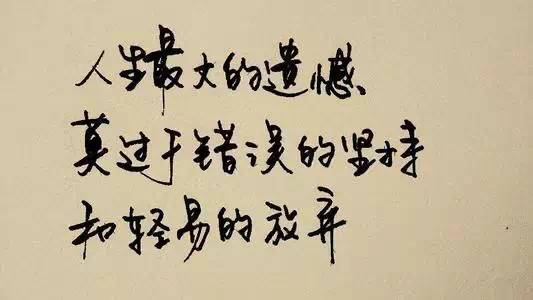 人生最大的遗憾、
莫过于错误的坚持
和轻易的放弃